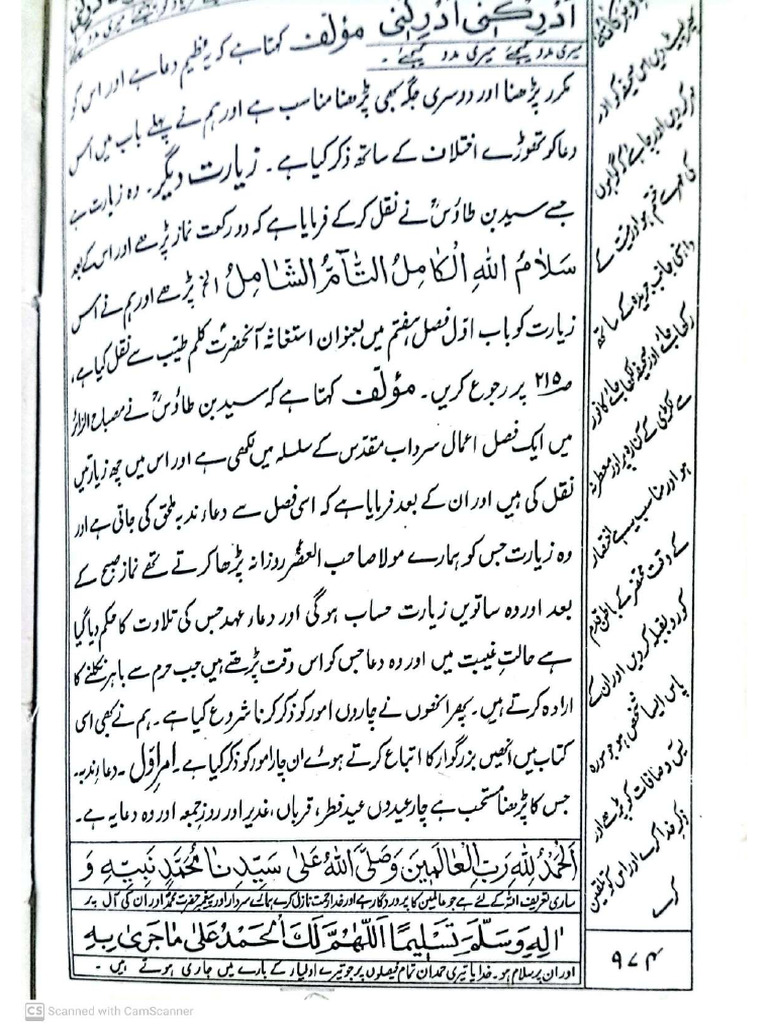 اَدْرِكْنِىْ اَدْرِكْنِىْ مؤلف کہتا ہے کہ یہ عظیم دعا ہے اور اس کو
میری مدد کیجئے میری مدد کیجئے۔
مکرر پڑھنا اور دوسری جگہ بھی پڑھنا مناسب ہے اور ہم نے پہلے باب میں اس
دعا کو تھوڑے اختلاف کے ساتھ ذکر کیا ہے۔ زیارت دیگر۔ وہ زیارت ہے
جسے سید بن طاؤسؒ نے نقل کر کے فرمایا ہے کہ دو رکعت نماز پڑھے اور اس کے بعد
سَلَامُ اللهِ الْكَامِلُ التَّآمُّ الشَّامِلُ الخ پڑھے اور ہم نے اس
زیارت کو باب اوّل فصل ہفتم میں بعنوان استغاثہ آنحضرتؐ کلم طیّب سے نقل کیا ہے،
ص۲۱۵ پر رجوع کریں۔ مؤلف کہتا ہے کہ سید بن طاؤسؒ نے مصباح الزائر
میں ایک فصل اعمال سرداب مقدس کے سلسلہ میں لکھی ہے اور اس میں چھ زیارتیں
نقل کی ہیں اور ان کے بعد فرمایا ہے کہ اسی فصل سے دعاء ندبہ ملحق کی جاتی ہے اور
وہ زیارت جس کو ہمارے مولا صاحب العصرؑ روزانہ پڑھا کرتے تھے نماز صبح کے
بعد اور وہ ساتویں زیارت حساب ہوگی اور دعاء عہد جس کی تلاوت کا حکم دیا گیا
ہے حالتِ غیبت میں اور وہ دعا جس کو اس وقت پڑھتے ہیں جب حرم سے باہر نکلنے کا
ارادہ کرتے ہیں۔ پھر انھوں نے چاروں امور کو ذکر کرنا شروع کیا ہے۔ ہم نے بھی اسی
کتاب میں انھیں بزرگوار کا اتباع کرتے ہوئے ان چار امور کو ذکر کیا ہے۔ امر اوّل۔ دعاء ندبہ۔
جس کا پڑھنا مستحب ہے چار عیدوں عید فطر، قرباں، غدیر اور روزِ جمعہ اور وہ دعا یہ ہے۔
اَلْحَمْدُ لِلّٰهِ رَبِّ الْعَالَمِيْنَ وَصَلَّى اللهُ عَلٰى سَيِّدِنَا مُحَمَّدٍ نَبِيِّهٖ وَ
ساری تعریف اللہ کے لئے ہے جو عالمین کا پروردگار ہے اور خدا رحمت نازل کرے ہمارے سردار اور پیغمبر حضرت محمدؐ اور ان کی آل پر
اٰلِهٖ وَسَلَّمَ تَسْلِيْمًا اَللّٰهُمَّ لَكَ الْحَمْدُ عَلٰى مَا جَرٰى بِهٖ
اور ان پر سلام ہو۔ خدایا تیری حمد ان تمام فیصلوں پر جو تیرے اولیاء کے بارے میں جاری ہوتے ہیں۔
لپیٹ دیں اس صحیفہ کو اور
کی مہر سے ختم ہو اور میت کے
داہنی جانب جریدہ کے ساتھ
رکھا جائے اور صحیفہ لکھا جائے کافور
ہو اور مناسب ہے احتضار
کے وقت محتضر کے باطن قدم
کو رو بقبلہ کر دیں اور ان کے
پاس ایسا شخص ہو جو سورہ
یٰس و صافات کو پڑھے اور
ذکر خدا کرے اور اس کو تلقین
کرے
۹۷۴
CS Scanned with CamScanner